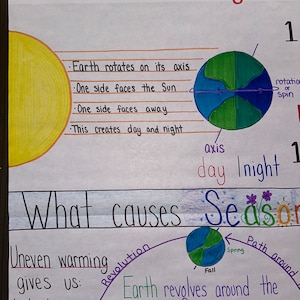 1
· Earth rotates on its axis
· One side faces the Sun
· One side faces away
· This creates day and night
rotation
or
spin
axis
day | night
1
What causes Season
Uneven warming
gives us:
Revolution
Path around
Spring
Fall
Earth revolves around the